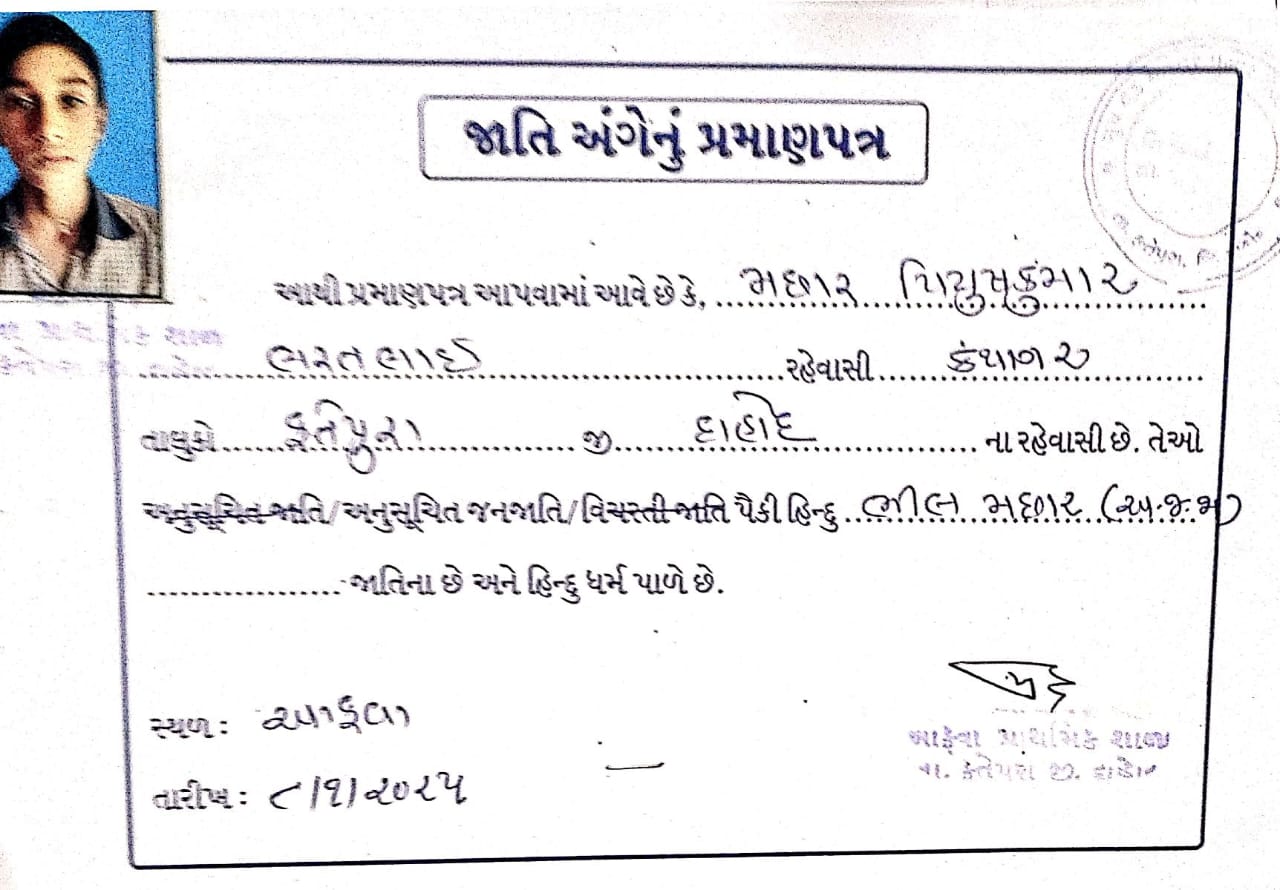 જાતિ અંગેનું પ્રમાણપત્ર
આથી પ્રમાણપત્ર આપવામાં આવે છે કે, મછાર પિયુષકુમાર
ભરતભાઈ રહેવાસી કંથાગર
તાલુકો ફતેપુરા જી દાહોદ ના રહેવાસી છે. તેઓ
અનુસૂચિત જાતિ/અનુસૂચિત જનજાતિ/વિચરતી જાતિ પૈકી હિન્દુ ભીલ મછાર (અ.જ.જા)
જાતિના છે અને હિન્દુ ધર્મ પાળે છે.
સ્થળ: આફવા
તારીખ: ૮/૧/૨૦૨૫
આફવા પ્રાથમિક શાળા
તા. ફતેપુરા જી. દાહોદ